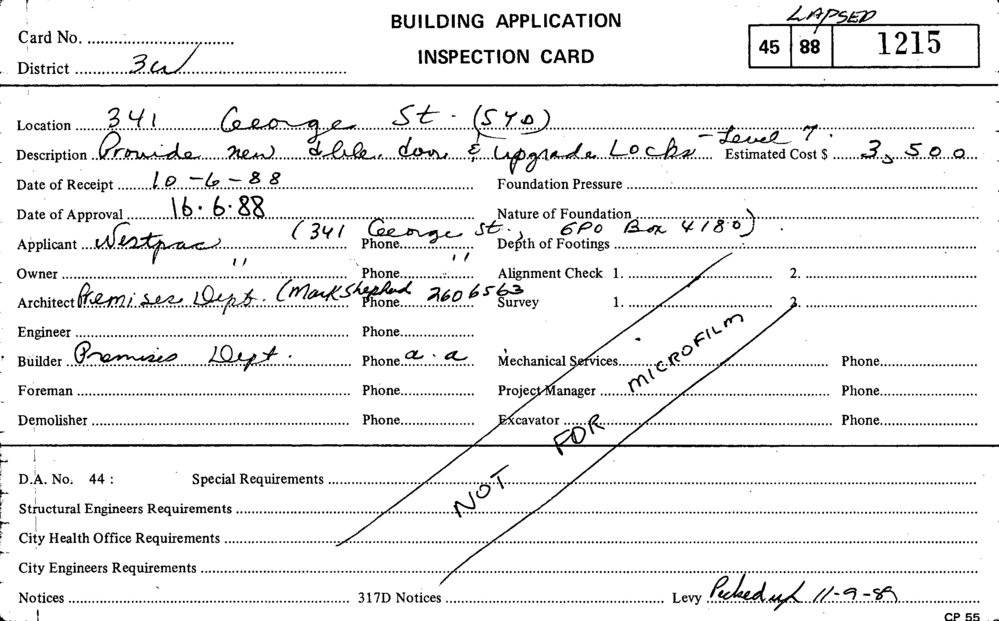 LAPSED
BUILDING APPLICATION
INSPECTION CARD
Card No.
45 88 1215
District 3W
Location 341 George St. (SYD)
Description Provide new dble. door & upgrade Locks - Level 7. Estimated Cost $ 3,500
Date of Receipt 10-6-88 Foundation Pressure
Date of Approval 16.6.88 Nature of Foundation
Applicant Westpac (341 George St., GPO Box 4180). Phone Depth of Footings
Owner " Phone " Alignment Check 1. 2.
Architect Premises Dept. (Mark Shephard Phone 2606563 Survey 1. 2.
Engineer Phone
Builder Premises Dept. Phone a.a Mechanical Services Phone
Foreman Phone Project Manager Phone
Demolisher Phone Excavator Phone
NOT FOR MICROFILM
D.A. No. 44 : Special Requirements
Structural Engineers Requirements
City Health Office Requirements
City Engineers Requirements
Notices 317D Notices Levy Picked up 11-9-89
CP 55